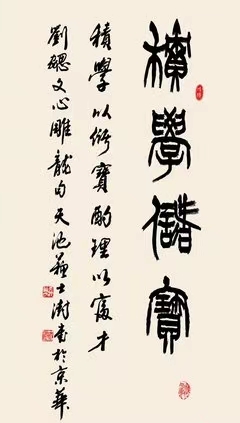 積學儲寶
積學以儲寶酌理以富才
劉勰文心雕龍句天池蘇士澍書於京華